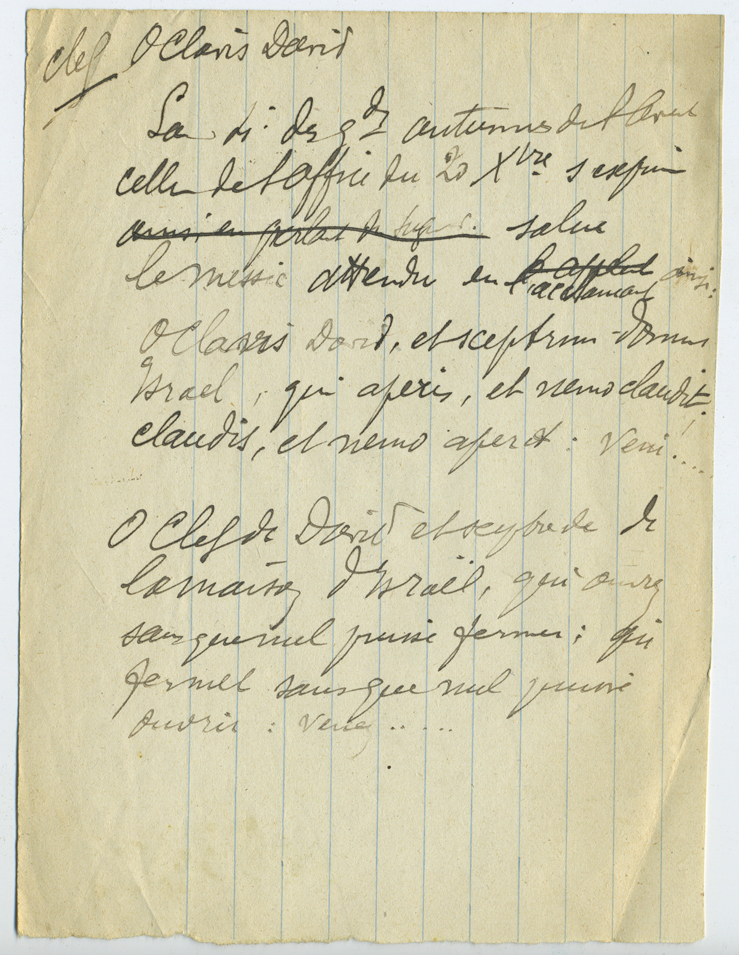 clef O Clavis David
La 4e des gdes antiennes de l'Avent
celle de l'office du 20 Xbre s'exprime
ainsi en parlant de salue
le messie attendu en l'appelant ainsi:
l'acclamant
O Clavis David, et sceptrum domus
Israel, qui aperis, et nemo claudit;
claudis, et nemo aperit : Veni....
O Clef de David et sceptre de
la maison d'Israël, qui ouvrez
sans que nul puisse fermer ; qui
fermez sans que nul puisse
ouvrir : venez .....